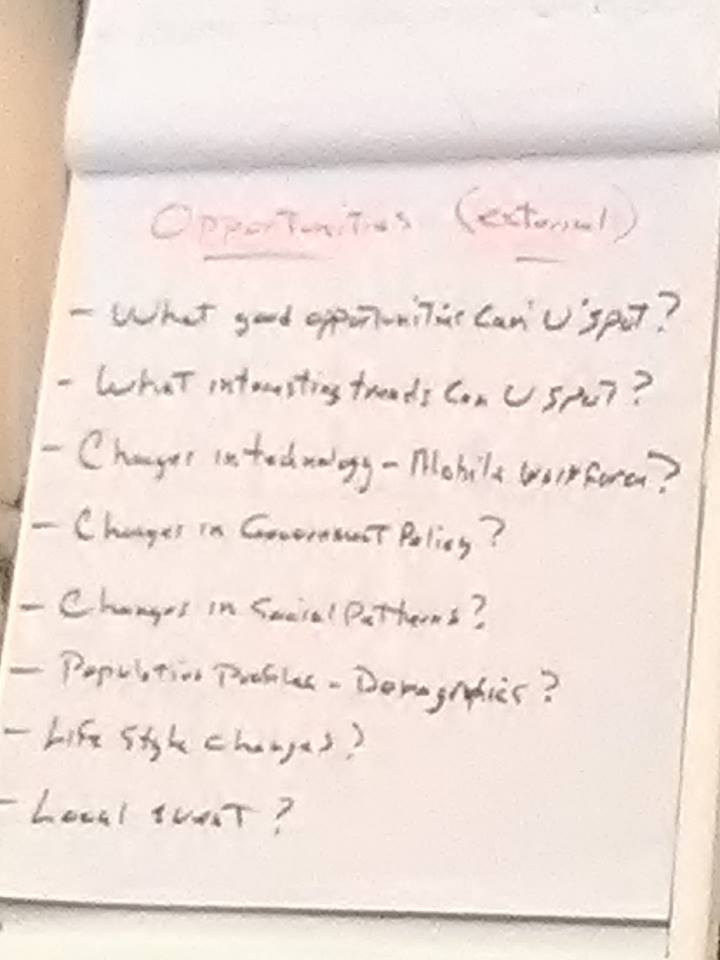 Opportunities (external)
- What good opportunities can U spot?
- What interesting trends can U spot?
- Changes in technology - Mobile workforce?
- Changes in Government Policy?
- Changes in Social Patterns?
- Population Profiles - Demographics?
- Life style changes?
- Local event?